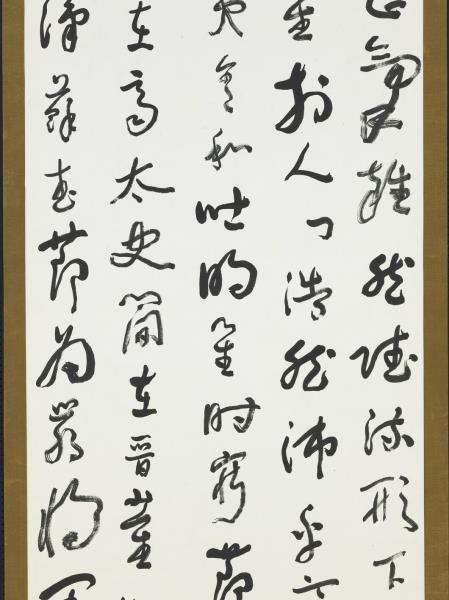 正氣雜然賦流形下
星於人曰浩然沛乎
夷含和吐明庭時窮節
在齊太史簡在晉董
漢蘇武節為嚴將軍